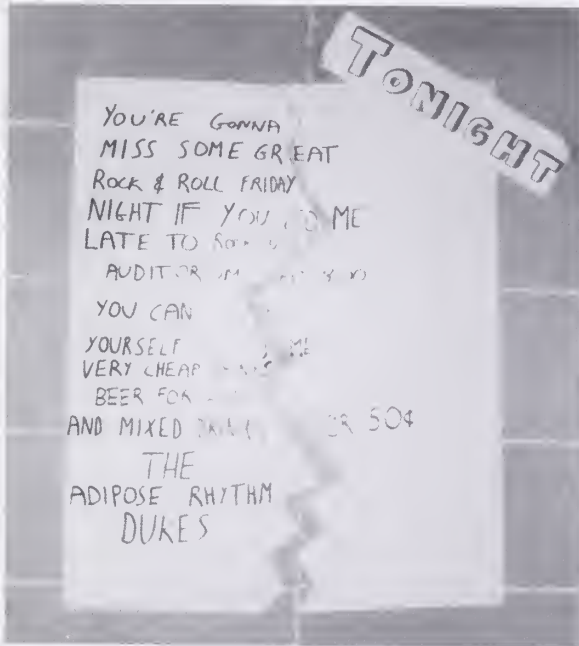 TONIGHT
YOU'RE GONNA
MISS SOME GREAT
ROCK & ROLL FRIDAY
NIGHT IF YOU ME
LATE TO
YOU CAN
YOURSELF
VERY CHEAP
BEER FOR
AND MIXED 50¢
THE
ADIPOSE RHYTHM
DUKES